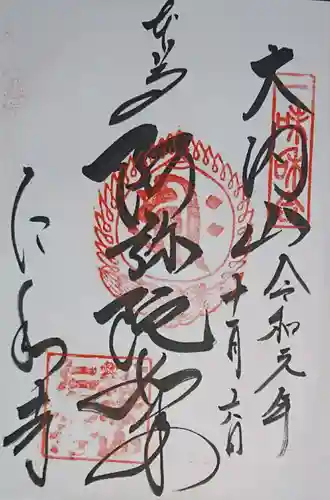 大内山
令和元年
十一月六日
本尊
阿弥陀如来
仁和寺